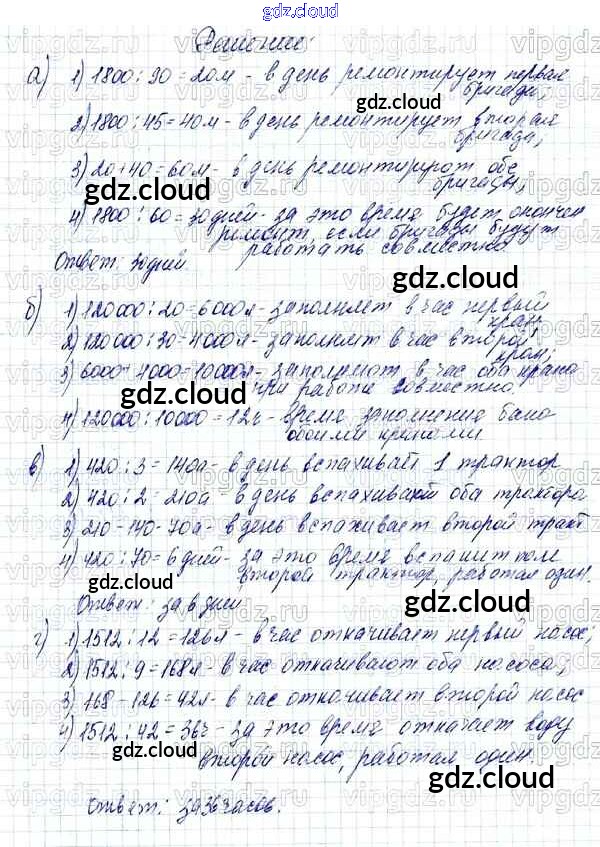 gdz.cloud
Решение:
а) 1) 1800 : 90 = 20м - в день ремонтирует первая
бригада;
gdz.cloud
2) 1800 : 45 = 40м - в день ремонтирует вторая
бригада;
3) 20 + 40 = 60м - в день ремонтируют обе
бригады;
gdz.cloud
4) 1800 : 60 = 30 дней - за это время будет окончен
ремонт, если бригады будут
работать совместно
Ответ: 30 дней.
gdz.cloud
б) 1) 120000 : 20 = 6000л - заполняет в час первый
кран;
2) 120000 : 30 = 4000л - заполнит в час второй
кран;
3) 6000 + 4000 = 10000л - заполняют в час оба крана
при работе совместно.
gdz.cloud
4) 120000 : 10000 = 12ч - время заполнение бака
обоими кранами.
в) 1) 420 : 3 = 140а - в день вспахивает 1 трактор
2) 420 : 2 = 210а - в день вспахивают оба трактора
3) 210 - 140 = 70а - в день вспаживает второй тракт
4) 420 : 70 = 6 дней - за это время вспашит поле
второй трактор, работая один.
gdz.cloud
Ответ: за 6 дней
gdz.cloud
г) 1) 1512 : 12 = 126л - в час откачивает первый насос;
2) 1512 : 9 = 168л - в час откачивают оба насоса;
3) 168 - 126 = 42л - в час откачивает второй насос
4) 1512 : 42 = 36ч - за это время откачает воду
второй насос, работая один.
gdz.cloud
Ответ: за 36 часов.